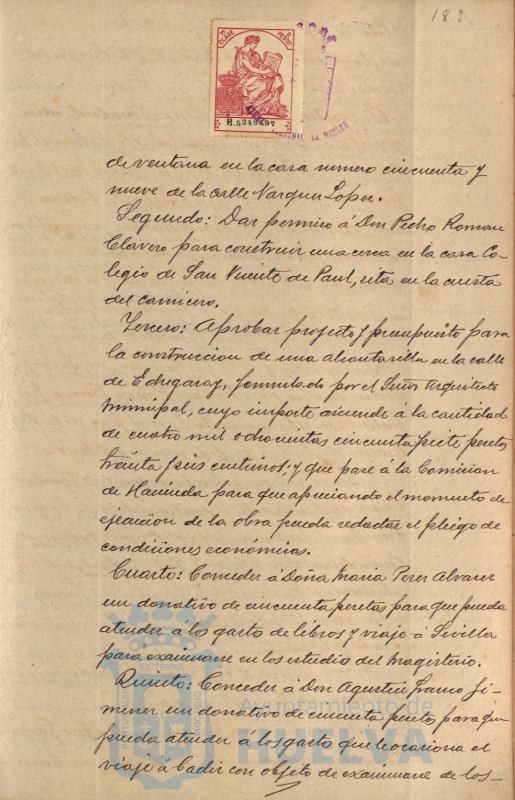 189
7ª CLASE
B.5348897
de ventana en la casa numero cincuenta y
nueve de la calle Vazquez Lopez.
Segundo: Dar permiso á Don Pedro Roman
Clavero para construir una cerca en la casa Co-
legio de San Vicente de Paul, sita en la cuesta
del carnicero.
Tercero: Aprobar proyecto y presupuesto para
la construccion de una alcantarilla en la calle
de Echegaray, formulado por el Señor Arquitecto
Municipal, cuyo importe asciende á la cantidad
de cuatro mil ochocientas cincuenta y siete pesetas
treinta y seis centimos; y que pase á la Comision
de Hacienda para que apreciando el momento de
ejecucion de la obra pueda redactar el pliego de
condiciones económicas.
Cuarto: Conceder á Doña Maria Perez Alvarez
un donativo de cincuenta pesetas para que pueda
atender á los gasto de libros y viaje á Sevilla
para examinarse en los estudio del Magisterio.
Quinto: Conceder á Don Agustin Franco Ji-
menez un donativo de cincuenta pesetas para que
pueda atender á los gasto que le ocasiona el
viaje á Cadiz con objeto de examinarse de los-
Ayuntamiento de
HUELVA